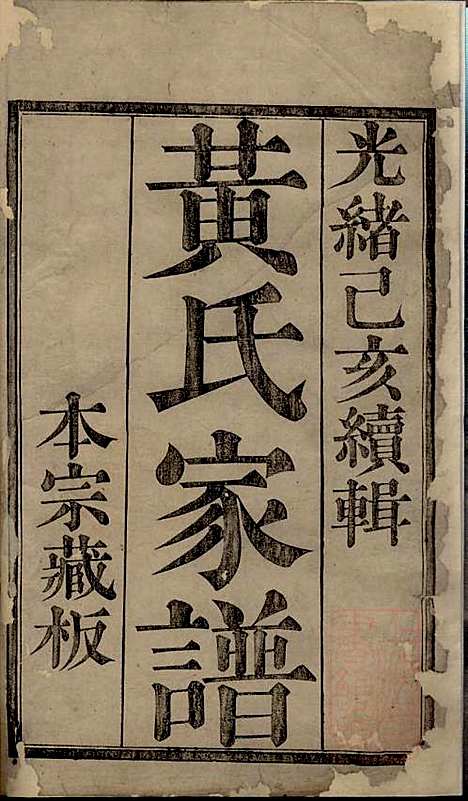 光緒己亥續輯
黃氏家譜
本宗藏板